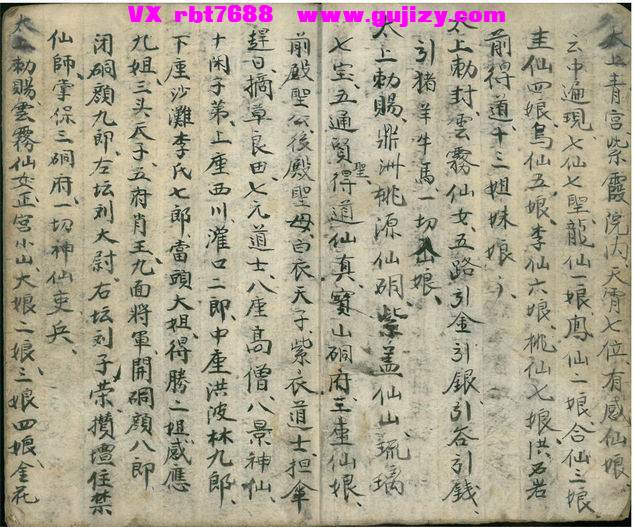 VX rbt7688 www.gujizy.com
太上青宮紫霞院内天霄七位有感仙娘
云中遍現七仙七聖龍仙一娘鳯仙一娘合仙三娘
圭仙四娘鳥仙五娘李仙六娘桃仙七娘洪石岩
前得道十三姐妹娘〻
太上勅封雲霧仙女五路引金引銀引谷引錢
引猪羊牛馬一切娘
太上勅賜鼎洲桃源仙硐紫盖仙山琉璃
七宝五通賢聖得道仙真寳山硐府三座仙娘
前殿聖公後殿聖母白衣天子紫衣道士担傘
趕日摘草良田七元道士八座高僧八景神仙
十閑子弟上座西川灌口二郎中座洪波林九郎
下座沙灘李氏七郎當頭大姐得勝二姐感應
九姐三头天子五府肖王九面將軍開硐顔八郎
闭硐顔九郎左坛刘大尉右坛刘子荣攢壇住禁
仙師掌保三硐府一切神仙吏兵
太上勅賜雲霧仙女正宮小山大娘二娘三娘四娘金花